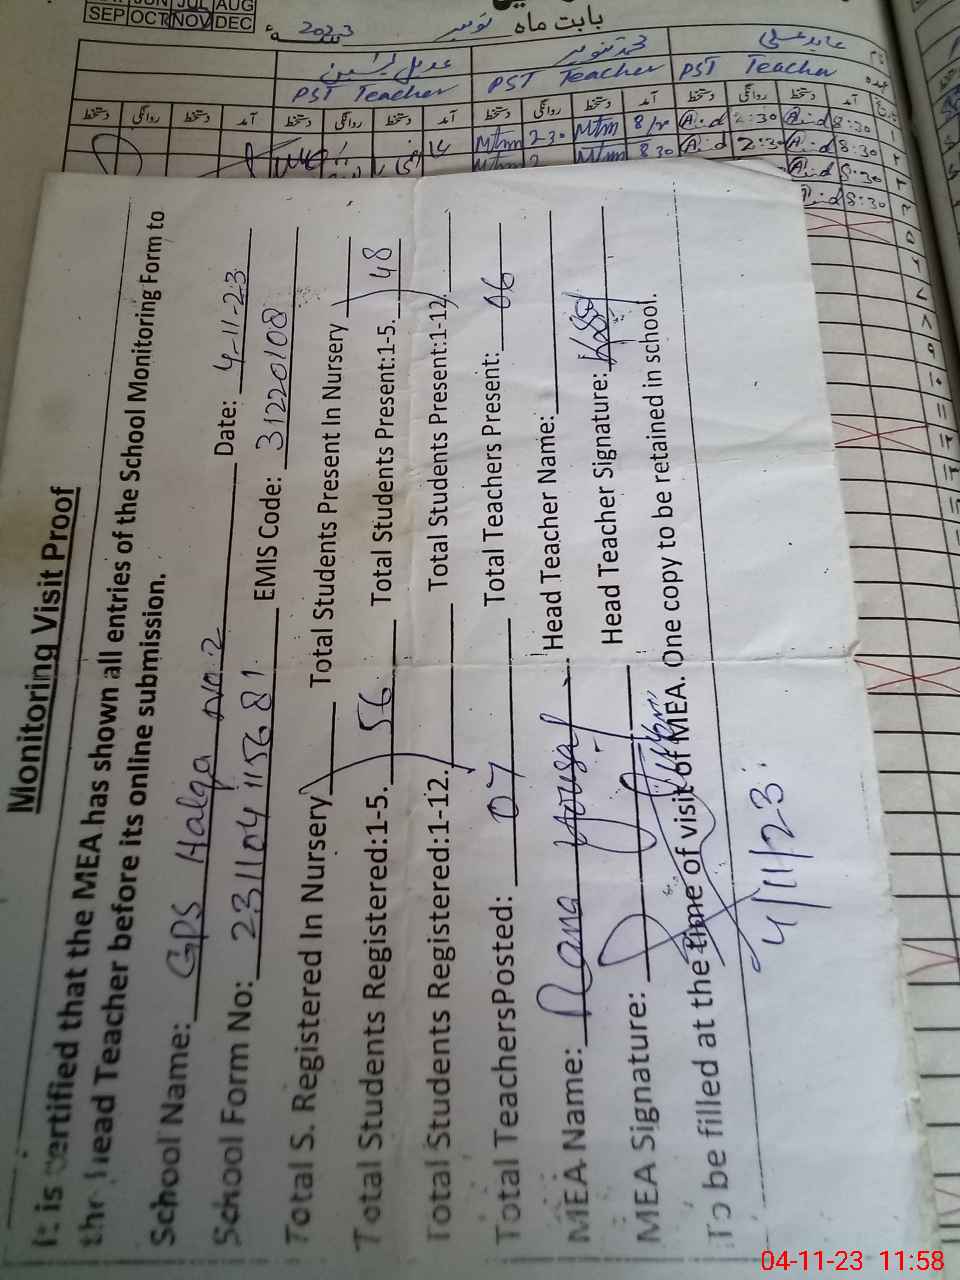 AUG
SEP OCT NOV DEC
بابت ماہ نومبر 2023ء
عدیل یٰسین محمد تنویر عابد علی
PST Teacher PST Teacher PST Teacher
دستخط روانگی دستخط آمد دستخط روانگی دستخط آمد دستخط روانگی دستخط آمد
Mtm 2-30 Mtm 2:30 8:30
Mtm Mtm 8 30 2:30 8:30
8:30
8:30
Monitoring Visit Proof
It is certified that the MEA has shown all entries of the School Monitoring Form to
the Head Teacher before its online submission.
School Name: GPS Halqa No.2 Date: 4-11-23
School Form No: 231104115681 EMIS Code: 31220108
Total S. Registered In Nursery Total Students Present In Nursery
Total Students Registered:1-5. 56 Total Students Present:1-5. 48
Total Students Registered:1-12. Total Students Present:1-12.
Total TeachersPosted: 07 Total Teachers Present: 06
MEA Name: Rana Yousaf Head Teacher Name:
MEA Signature: Head Teacher Signature:
To be filled at the time of visit of MEA. One copy to be retained in school.
4/11/23
04-11-23 11:58